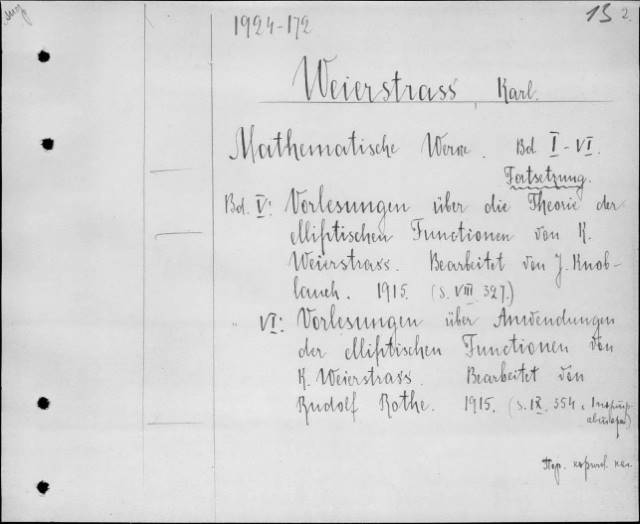 1924-172
13 2.
Weierstrass, Karl.
Mathematische Werke. Bd I-VI.
Fortsetzung.
Bd. V: Vorlesungen über die Theorie der
elliptischen Functionen von K.
Weierstrass. Bearbeitet von J. Knob-
lauch. 1915. (S. VIII. 327.)
" VI: Vorlesungen über Anwendungen
der elliptischen Functionen von
K. Weierstrass. Bearbeitet von
Rudolf Rothe. 1915. (S. IX, 354